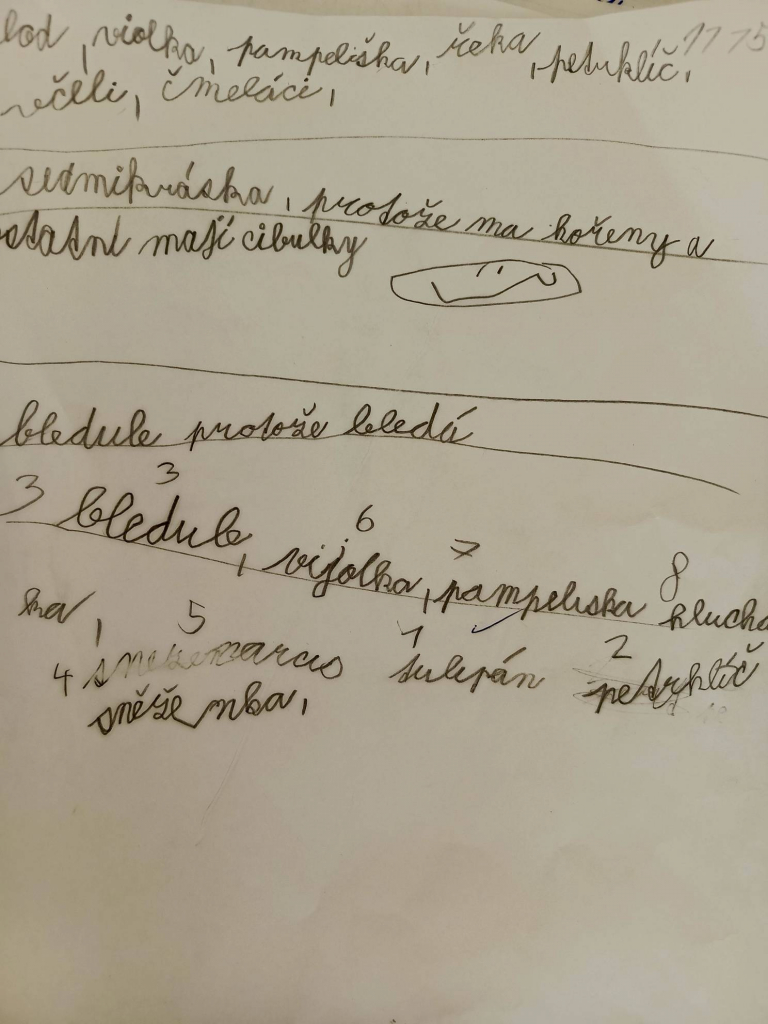 lod, violka, pampeliška, řeka, petrklíč, 11 15
včeli, čmeláci,
sedmikráska, protože ma kořeny a
ostatní mají cibulky
bledule protože bledá
3 3 6 7 8
bledule, vijolka, pampeliska hlucha
ka, 5 1 2
4 narcis tulipán petrklíč
sněženka,